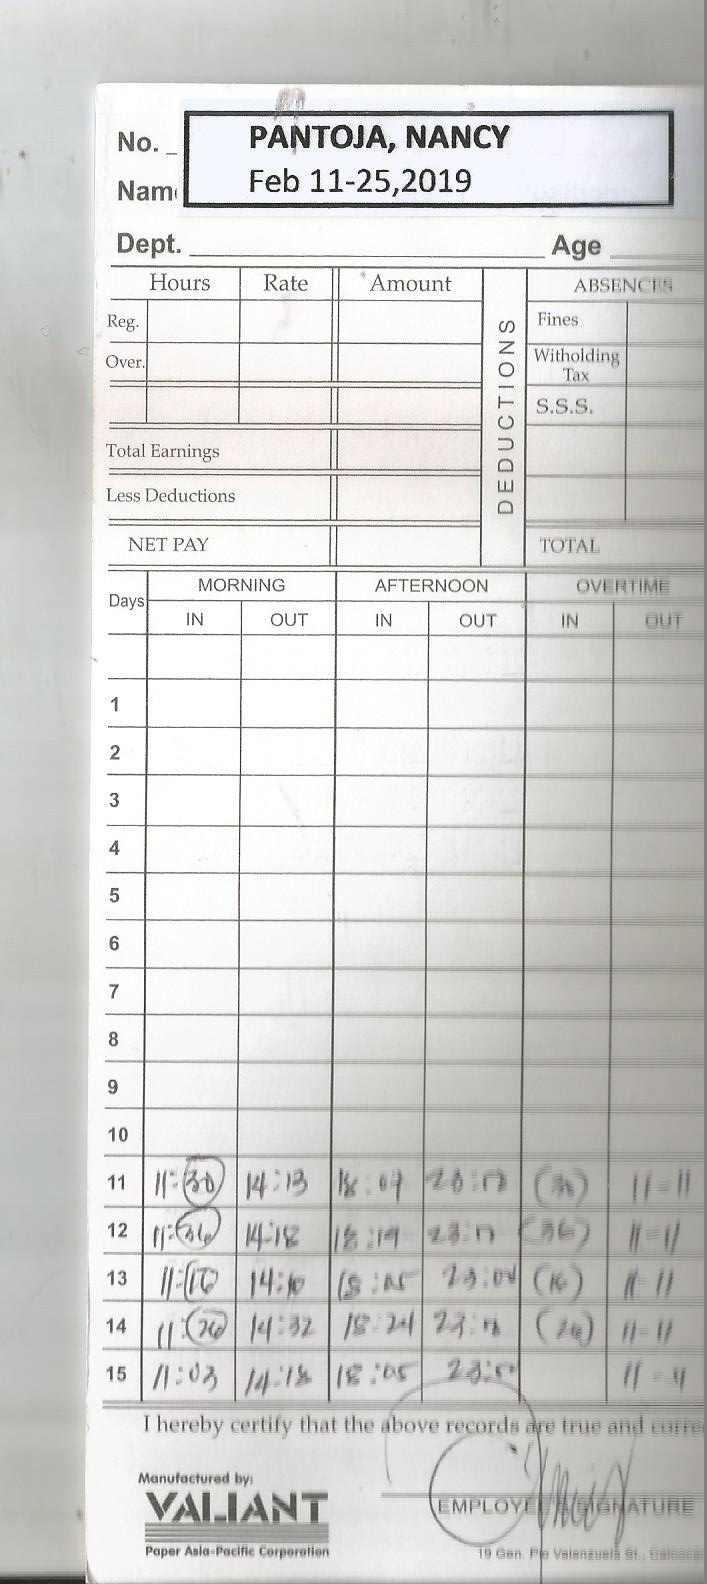 No. _
PANTOJA, NANCY
Feb 11-25,2019
Nam
Dept. Age
Hours Rate Amount
Reg.
Over.
Total Earnings
Less Deductions
NET PAY
DEDUCTIONS
ABSENCES
Fines
Witholding
Tax
S.S.S.
TOTAL
Days MORNING AFTERNOON OVERTIME
IN OUT IN OUT IN OUT
1
2
3
4
5
6
7
8
9
10
11 11:30 14:13 18:07 (30) 11=11
12 11:36 14:18 18:19 23:17 (36) 11=11
13 11:16 14:10 18:05 23:00 (16) 11=11
14 11:26 14:32 18:24 (26) 11=11
15 11:03 14:18 18:05 11=11
I hereby certify that the above records are true and corre
EMPLOYEE'S SIGNATURE
Manufactured by:
VALIANT
Paper Asia-Pacific Corporation
19 Gen. Pio Valenzuela St., Caloocan